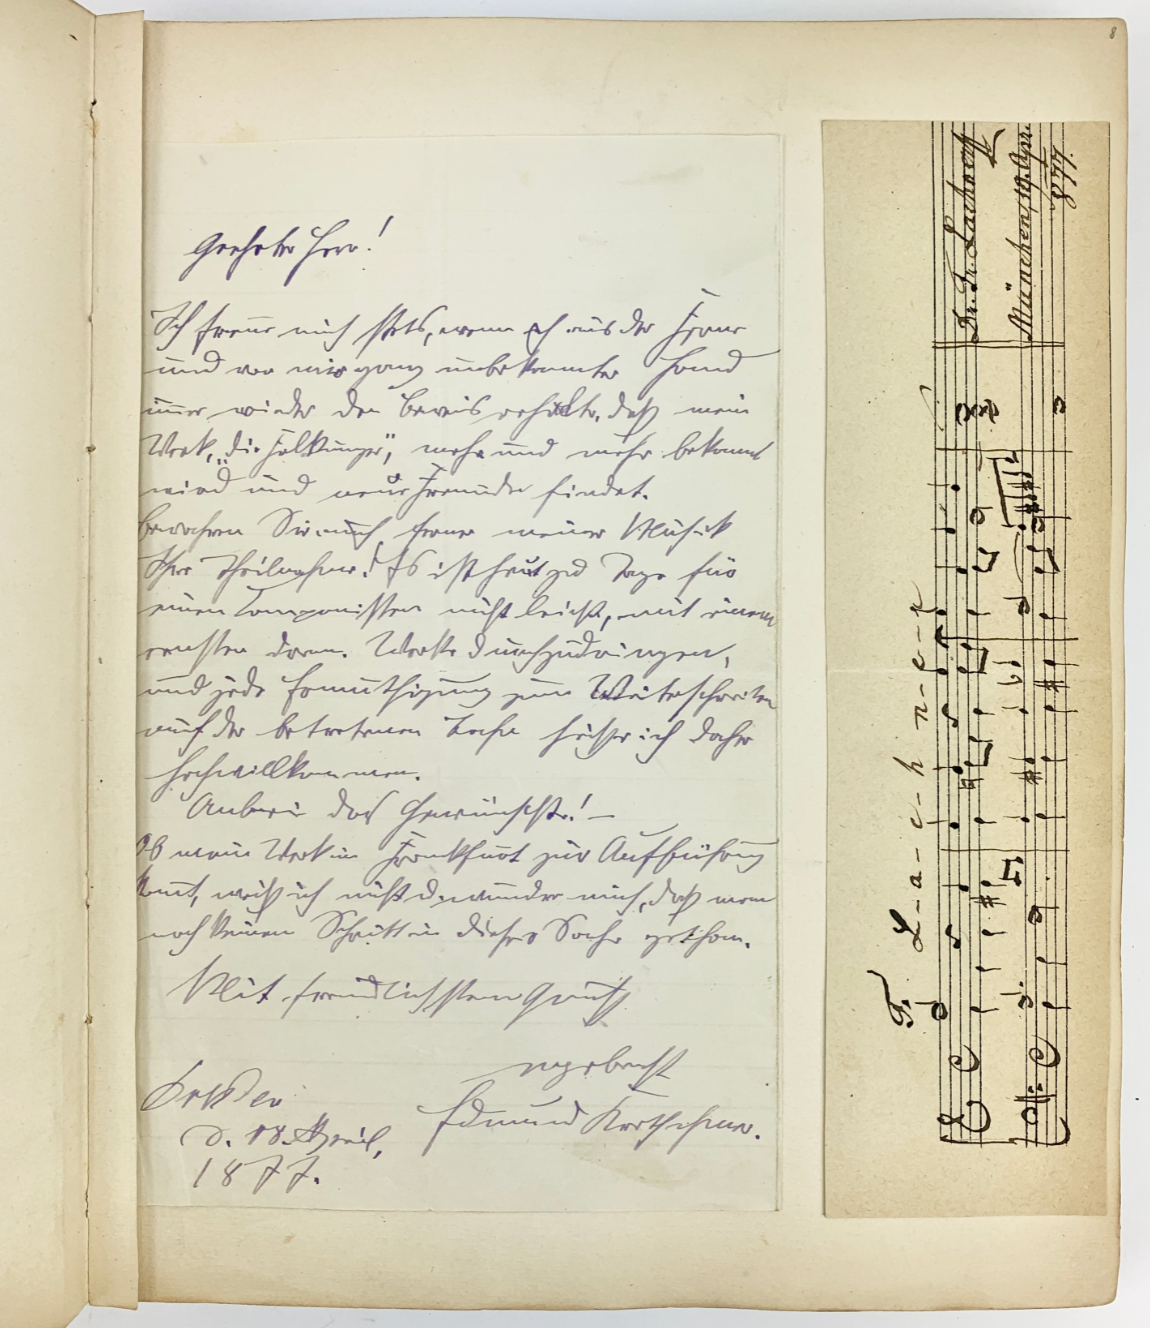 Geehrter Herr!
Ich freue mich stets, wenn ich aus der Ferne
und von mir ganz unbekannter Hand
immer wieder den Beweis erhalte, daß mein
Werk, „die Folkunger“, mehr und mehr bekannt
wird und neue Freunde findet.
Bewahren Sie auch ferner meiner Musik
Ihre Theilnahme! Es ist heut zu Tage für
einen Componisten nicht leicht, mit einem
ernsten dram. Werke durchzudringen,
und jede Ermuthigung zum Weiterschreiten
auf der betretenen Bahn heiße ich daher
hochwillkommen.
Anbei das Gewünschte! —
Ob mein Werk in Frankfurt zur Aufführung
kommt, weiß ich nicht u. wundre mich, daß man
noch keinen Schritt in dieser Sache gethan.
Mit freundlichstem Gruß
ergebenst
Edmund Kretschmer.
Dresden
d. 18. April,
1877.
F. L-a-c-h-n-e-r
Dr. Fr. Lachner
München, 19. Apr.
877.
8